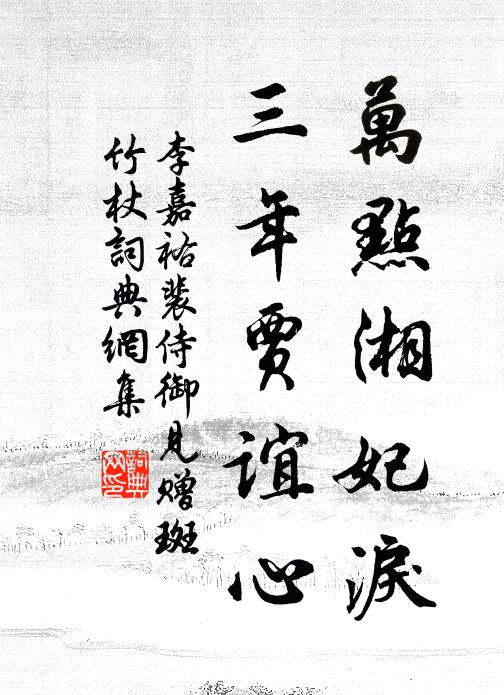 萬點湘妃淚
三年賈誼心
李嘉祐裴侍御見贈斑
竹杖詞典網集
詞典網印